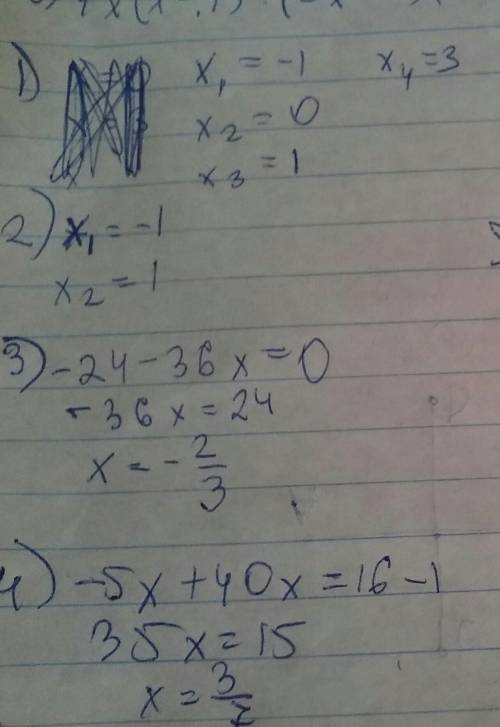 1) x₁ = -1 x₄ = 3
x₂ = 0
x₃ = 1
2) x₁ = -1
x₂ = 1
3) -24 - 36x = 0
-36x = 24
x = -2/3
4) -5x + 40x = 16 - 1
35x = 15
x = 3/7